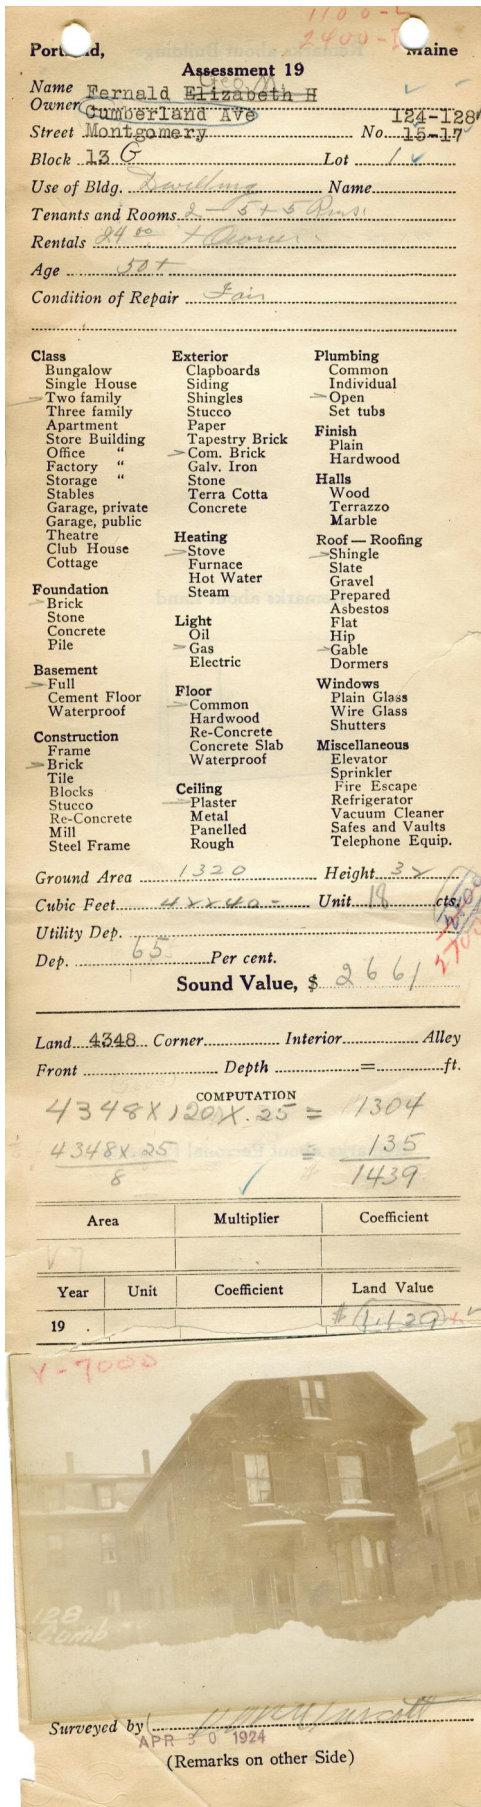 1100-L
2400-
Portland, Maine
Assessment 19
Geo. M.
Name Fernald Elizabeth H
Owner Cumberland Ave 124-128
Street Montgomery No. 15-17
Block 13 G Lot 1
Use of Bldg. Dwelling Name
Tenants and Rooms 2 - 5 + 5 Rms.
Rentals 24 00 + Owner
Age 50+
Condition of Repair Fair
Class
Bungalow
Single House
Two family
Three family
Apartment
Store Building
Office "
Factory "
Storage "
Stables
Garage, private
Garage, public
Theatre
Club House
Cottage
Foundation
Brick
Stone
Concrete
Pile
Basement
Full
Cement Floor
Waterproof
Construction
Frame
Brick
Tile
Blocks
Stucco
Re-Concrete
Mill
Steel Frame
Exterior
Clapboards
Siding
Shingles
Stucco
Paper
Tapestry Brick
Com. Brick
Galv. Iron
Stone
Terra Cotta
Concrete
Heating
Stove
Furnace
Hot Water
Steam
Light
Oil
Gas
Electric
Floor
Common
Hardwood
Re-Concrete
Concrete Slab
Waterproof
Ceiling
Plaster
Metal
Panelled
Rough
Plumbing
Common
Individual
Open
Set tubs
Finish
Plain
Hardwood
Halls
Wood
Terrazzo
Marble
Roof — Roofing
Shingle
Slate
Gravel
Prepared
Asbestos
Flat
Hip
Gable
Dormers
Windows
Plain Glass
Wire Glass
Shutters
Miscellaneous
Elevator
Sprinkler
Fire Escape
Refrigerator
Vacuum Cleaner
Safes and Vaults
Telephone Equip.
Ground Area 1320 Height 32
Cubic Feet 42240 - Unit 18 cts.
2700
Utility Dep.
Dep. 65 Per cent.
Sound Value, $ 2661
Land 4348 Corner Interior Alley
Front Depth = ft.
COMPUTATION
4348 X 120 X .25 = 1304
4348 X .25 = 135
8 1439
Area Multiplier Coefficient
Year Unit Coefficient Land Value
19 . $
V-7000
128
Cumb
Surveyed by
APR 30 1924
(Remarks on other Side)